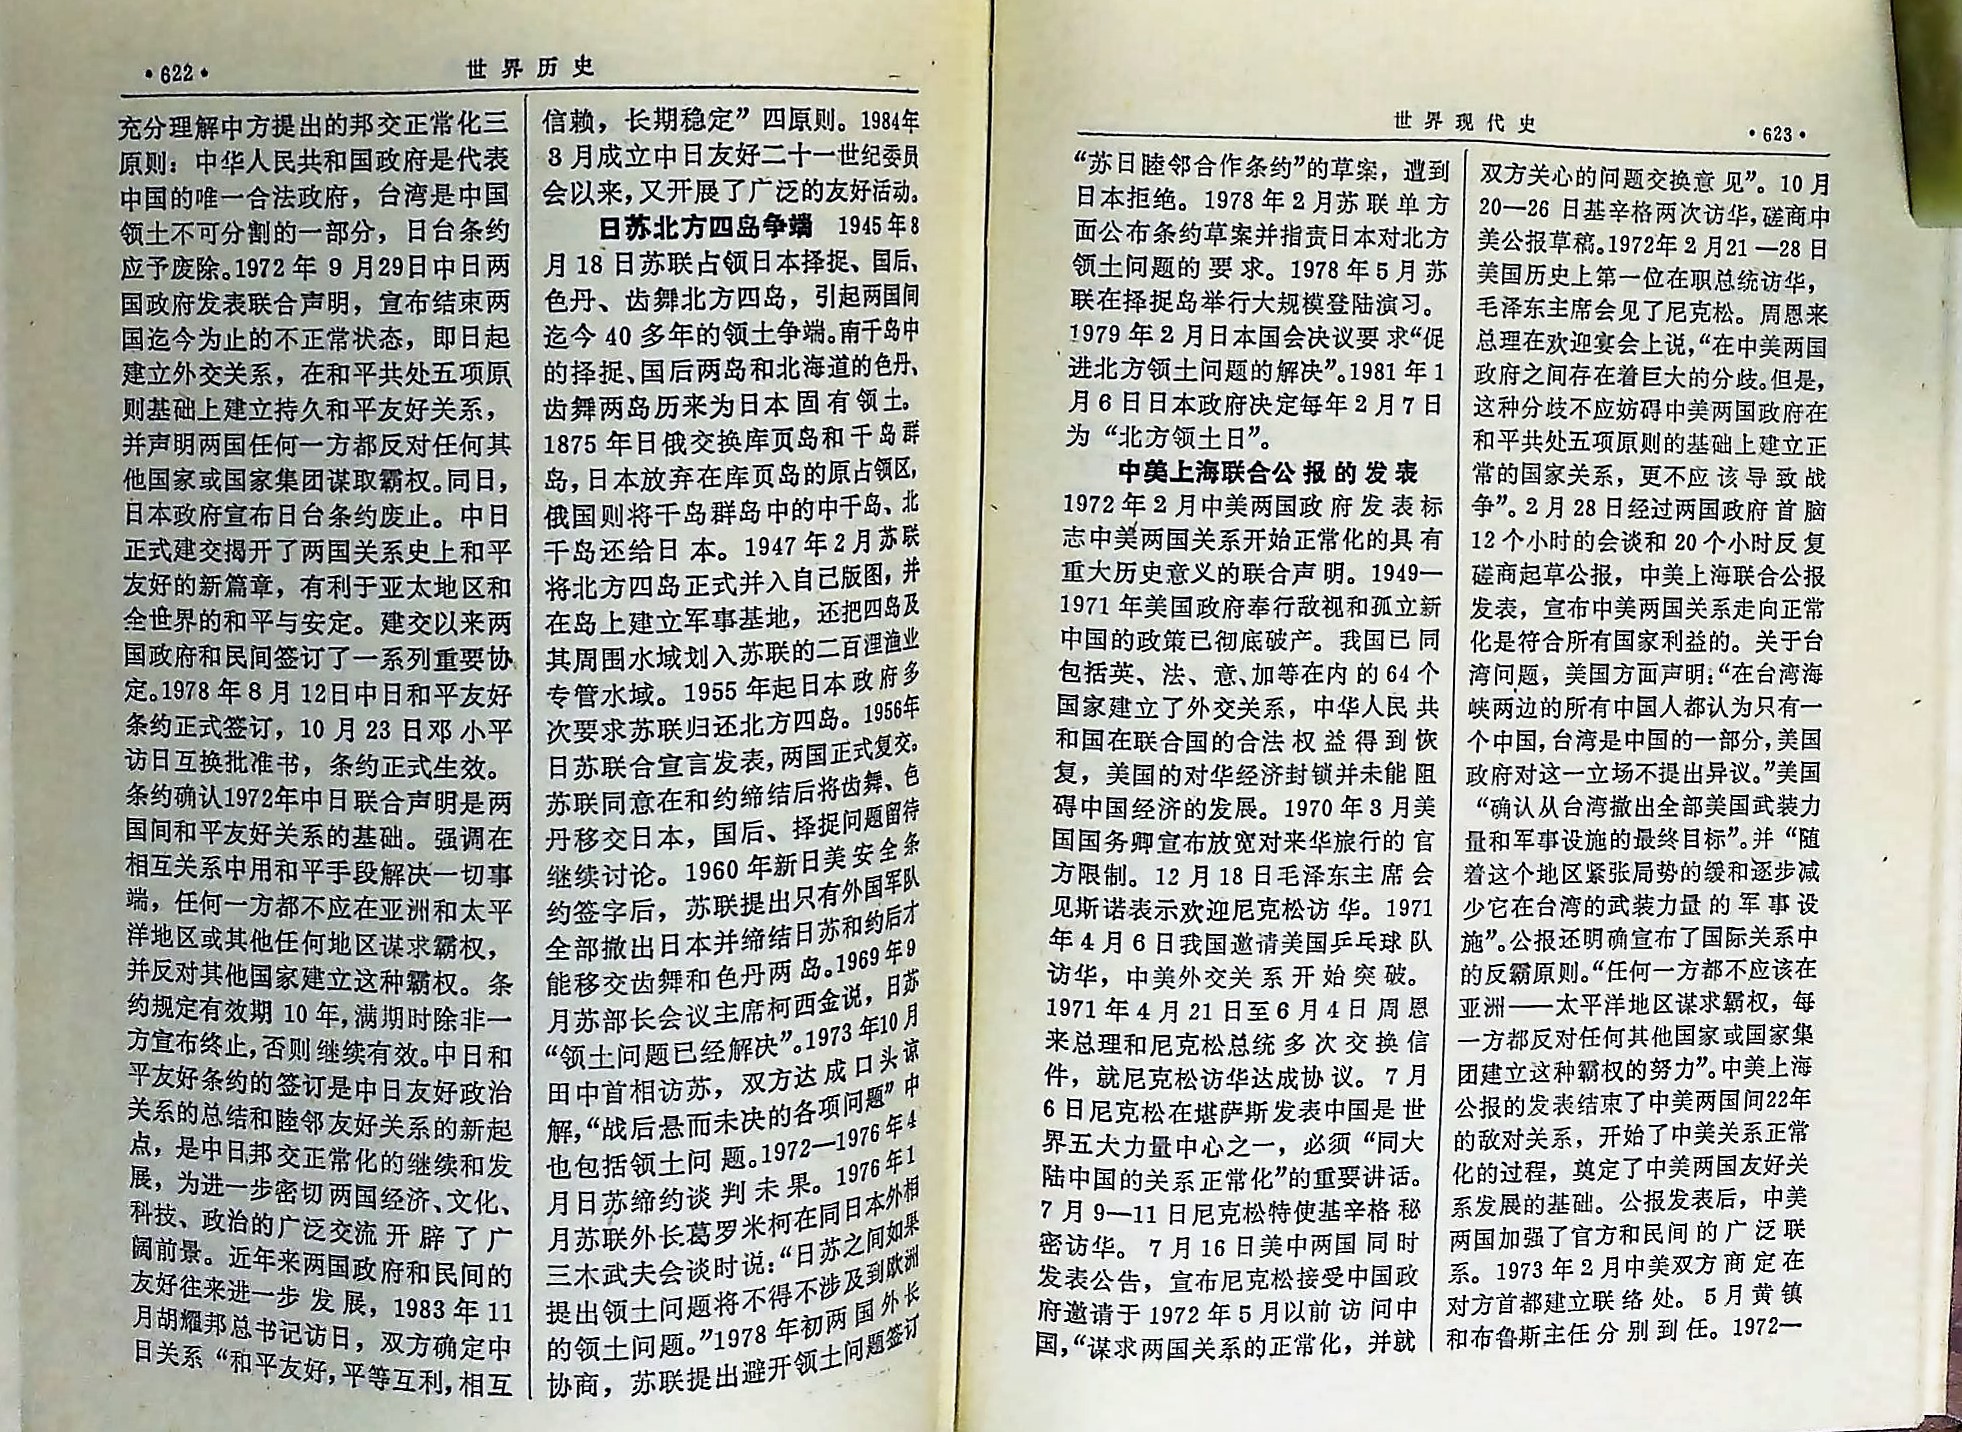 ·622·
世界历史
充分理解中方提出的邦交正常化三
原则：中华人民共和国政府是代表
中国的唯一合法政府，台湾是中国
领土不可分割的一部分，日台条约
应予废除。1972年9月29日中日两
国政府发表联合声明，宣布结束两
国迄今为止的不正常状态，即日起
建立外交关系，在和平共处五项原
则基础上建立持久和平友好关系，
并声明两国任何一方都反对任何其
他国家或国家集团谋取霸权。同日，
日本政府宣布日台条约废止。中日
正式建交揭开了两国关系史上和平
友好的新篇章，有利于亚太地区和
全世界的和平与安定。建交以来两
国政府和民间签订了一系列重要协
定。1978年8月12日中日和平友好
条约正式签订，10月23日邓小平
访日互换批准书，条约正式生效。
条约确认1972年中日联合声明是两
国间和平友好关系的基础。强调在
相互关系中用和平手段解决一切事
端，任何一方都不应在亚洲和太平
洋地区或其他任何地区谋求霸权，
并反对其他国家建立这种霸权。条
约规定有效期10年，满期时除非一
方宣布终止，否则继续有效。中日和
平友好条约的签订是中日友好政治
关系的总结和睦邻友好关系的新起
点，是中日邦交正常化的继续和发
展，为进一步密切两国经济、文化、
科技、政治的广泛交流开辟了广
阔前景。近年来两国政府和民间的
友好往来进一步发展，1983年11
月胡耀邦总书记访日，双方确定中
日关系“和平友好，平等互利，相互
信赖，长期稳定”四原则。1984年
3月成立中日友好二十一世纪委员
会以来，又开展了广泛的友好活动。
日苏北方四岛争端 1945年8
月18日苏联占领日本择捉、国后、
色丹、齿舞北方四岛，引起两国间
迄今40多年的领土争端。南千岛中
的择捉、国后两岛和北海道的色丹、
齿舞两岛历来为日本固有领土。
1875年日俄交换库页岛和千岛群
岛，日本放弃在库页岛的原占领区，
俄国则将千岛群岛中的中千岛、北
千岛还给日本。1947年2月苏联
将北方四岛正式并入自己版图，并
在岛上建立军事基地，还把四岛及
其周围水域划入苏联的二百浬渔业
专管水域。1955年起日本政府多
次要求苏联归还北方四岛。1956年
日苏联合宣言发表，两国正式复交。
苏联同意在和约缔结后将齿舞、色
丹移交日本，国后、择捉问题留待
继续讨论。1960年新日美安全条
约签字后，苏联提出只有外国军队
全部撤出日本并缔结日苏和约后才
能移交齿舞和色丹两岛。1969年9
月苏部长会议主席柯西金说，日苏
“领土问题已经解决”。1973年10月
田中首相访苏，双方达成口头谅
解，“战后悬而未决的各项问题”中
也包括领土问题。1972—1976年4
月日苏缔约谈判未果。1976年1
月苏联外长葛罗米柯在同日本外相
三木武夫会谈时说：“日苏之间如果
提出领土问题将不得不涉及到欧洲
的领土问题。”1978年初两国外长
协商，苏联提出避开领土问题签订
世界现代史
·623·
“苏日睦邻合作条约”的草案，遭到
日本拒绝。1978年2月苏联单方
面公布条约草案并指责日本对北方
领土问题的要求。1978年5月苏
联在择捉岛举行大规模登陆演习。
1979年2月日本国会决议要求“促
进北方领土问题的解决”。1981年1
月6日日本政府决定每年2月7日
为“北方领土日”。
中美上海联合公报的发表
1972年2月中美两国政府发表标
志中美两国关系开始正常化的具有
重大历史意义的联合声明。1949—
1971年美国政府奉行敌视和孤立新
中国的政策已彻底破产。我国已同
包括英、法、意、加等在内的64个
国家建立了外交关系，中华人民共
和国在联合国的合法权益得到恢
复，美国的对华经济封锁并未能阻
碍中国经济的发展。1970年3月美
国国务卿宣布放宽对来华旅行的官
方限制。12月18日毛泽东主席会
见斯诺表示欢迎尼克松访华。1971
年4月6日我国邀请美国乒乓球队
访华，中美外交关系开始突破。
1971年4月21日至6月4日周恩
来总理和尼克松总统多次交换信
件，就尼克松访华达成协议。7月
6日尼克松在堪萨斯发表中国是世
界五大力量中心之一，必须“同大
陆中国的关系正常化”的重要讲话。
7月9—11日尼克松特使基辛格秘
密访华。7月16日美中两国同时
发表公告，宣布尼克松接受中国政
府邀请于1972年5月以前访问中
国，“谋求两国关系的正常化，并就
双方关心的问题交换意见”。10月
20—26日基辛格两次访华，磋商中
美公报草稿。1972年2月21—28日
美国历史上第一位在职总统访华，
毛泽东主席会见了尼克松。周恩来
总理在欢迎宴会上说，“在中美两国
政府之间存在着巨大的分歧。但是，
这种分歧不应妨碍中美两国政府在
和平共处五项原则的基础上建立正
常的国家关系，更不应该导致战
争”。2月28日经过两国政府首脑
12个小时的会谈和20个小时反复
磋商起草公报，中美上海联合公报
发表，宣布中美两国关系走向正常
化是符合所有国家利益的。关于台
湾问题，美国方面声明：“在台湾海
峡两边的所有中国人都认为只有一
个中国，台湾是中国的一部分，美国
政府对这一立场不提出异议。”美国
“确认从台湾撤出全部美国武装力
量和军事设施的最终目标”。并“随
着这个地区紧张局势的缓和逐步减
少它在台湾的武装力量的军事设
施”。公报还明确宣布了国际关系中
的反霸原则。“任何一方都不应该在
亚洲——太平洋地区谋求霸权，每
一方都反对任何其他国家或国家集
团建立这种霸权的努力”。中美上海
公报的发表结束了中美两国间22年
的敌对关系，开始了中美关系正常
化的过程，奠定了中美两国友好关
系发展的基础。公报发表后，中美
两国加强了官方和民间的广泛联
系。1973年2月中美双方商定在
对方首都建立联络处。5月黄镇
和布鲁斯主任分别到任。1972—